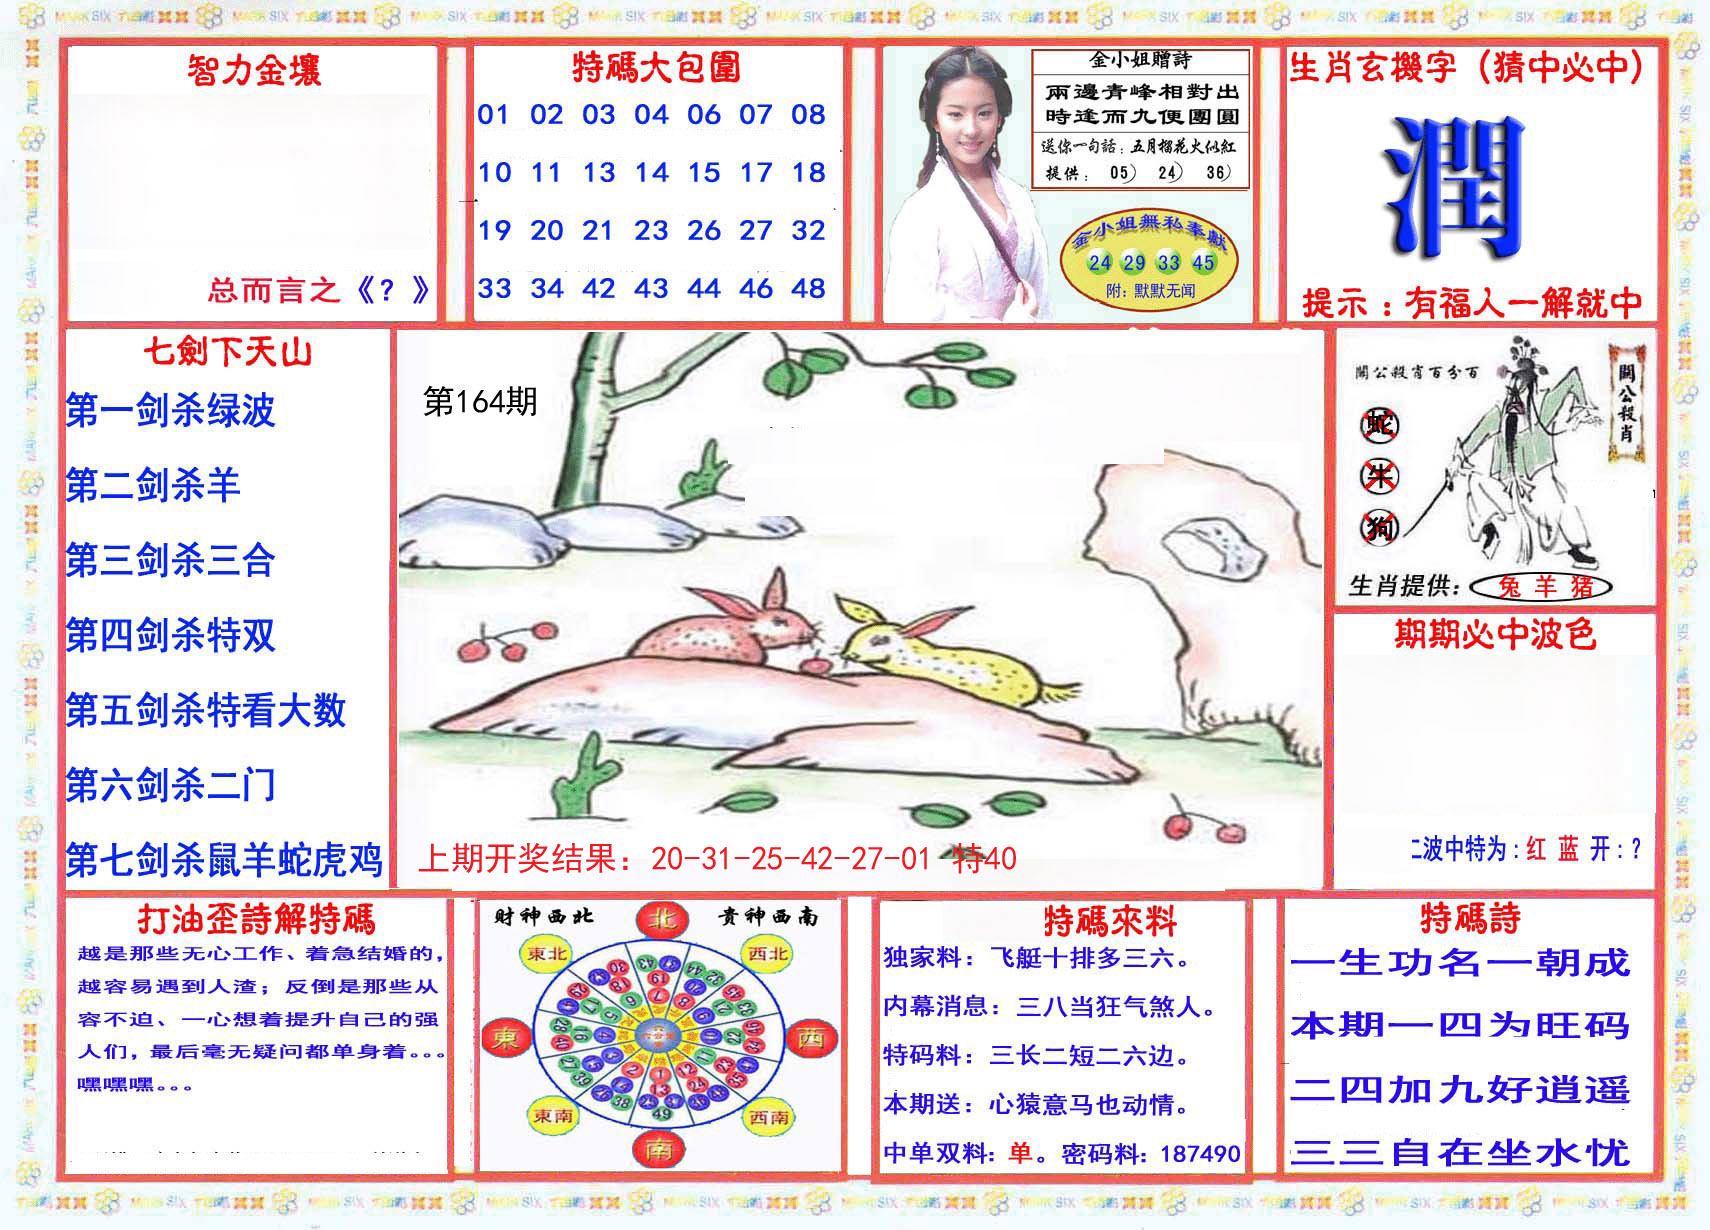 智力金壤
总而言之《？》
特碼大包圍
01 02 03 04 06 07 08
10 11 13 14 15 17 18
19 20 21 23 26 27 32
33 34 42 43 44 46 48
金小姐贈詩
兩邊青峰相對出
時逢而九便團圓
送你一句話：五月榴花火似紅
提供： 05） 24） 36）
金小姐無私奉獻
24 29 33 45
附：默默无闻
生肖玄機字（猜中必中）
潤
提示：有福人一解就中
七劍下天山
第一剑杀绿波
第二剑杀羊
第三剑杀三合
第四剑杀特双
第五剑杀特看大数
第六剑杀二门
第七剑杀鼠羊蛇虎鸡
第164期
上期开奖结果：20-31-25-42-27-01 特40
關公殺肖百分百
關公殺肖
蛇
牛
狗
生肖提供：兔 羊 猪
期期必中波色
二波中特为：红 蓝 开：？
打油歪詩解特碼
越是那些无心工作、着急结婚的，
越容易遇到人渣；反倒是那些从
容不迫、一心想着提升自己的强
人们，最后毫无疑问都单身着。。。
嘿嘿嘿。。。
財神西北
貴神西南
北
東北
西北
東
西
東南
西南
南
特碼來料
独家料：飞艇十排多三六。
内幕消息：三八当狂气煞人。
特码料：三长二短二六边。
本期送：心猿意马也动情。
中单双料：单。密码料：187490
特碼詩
一生功名一朝成
本期一四为旺码
二四加九好逍遥
三三自在坐水忧